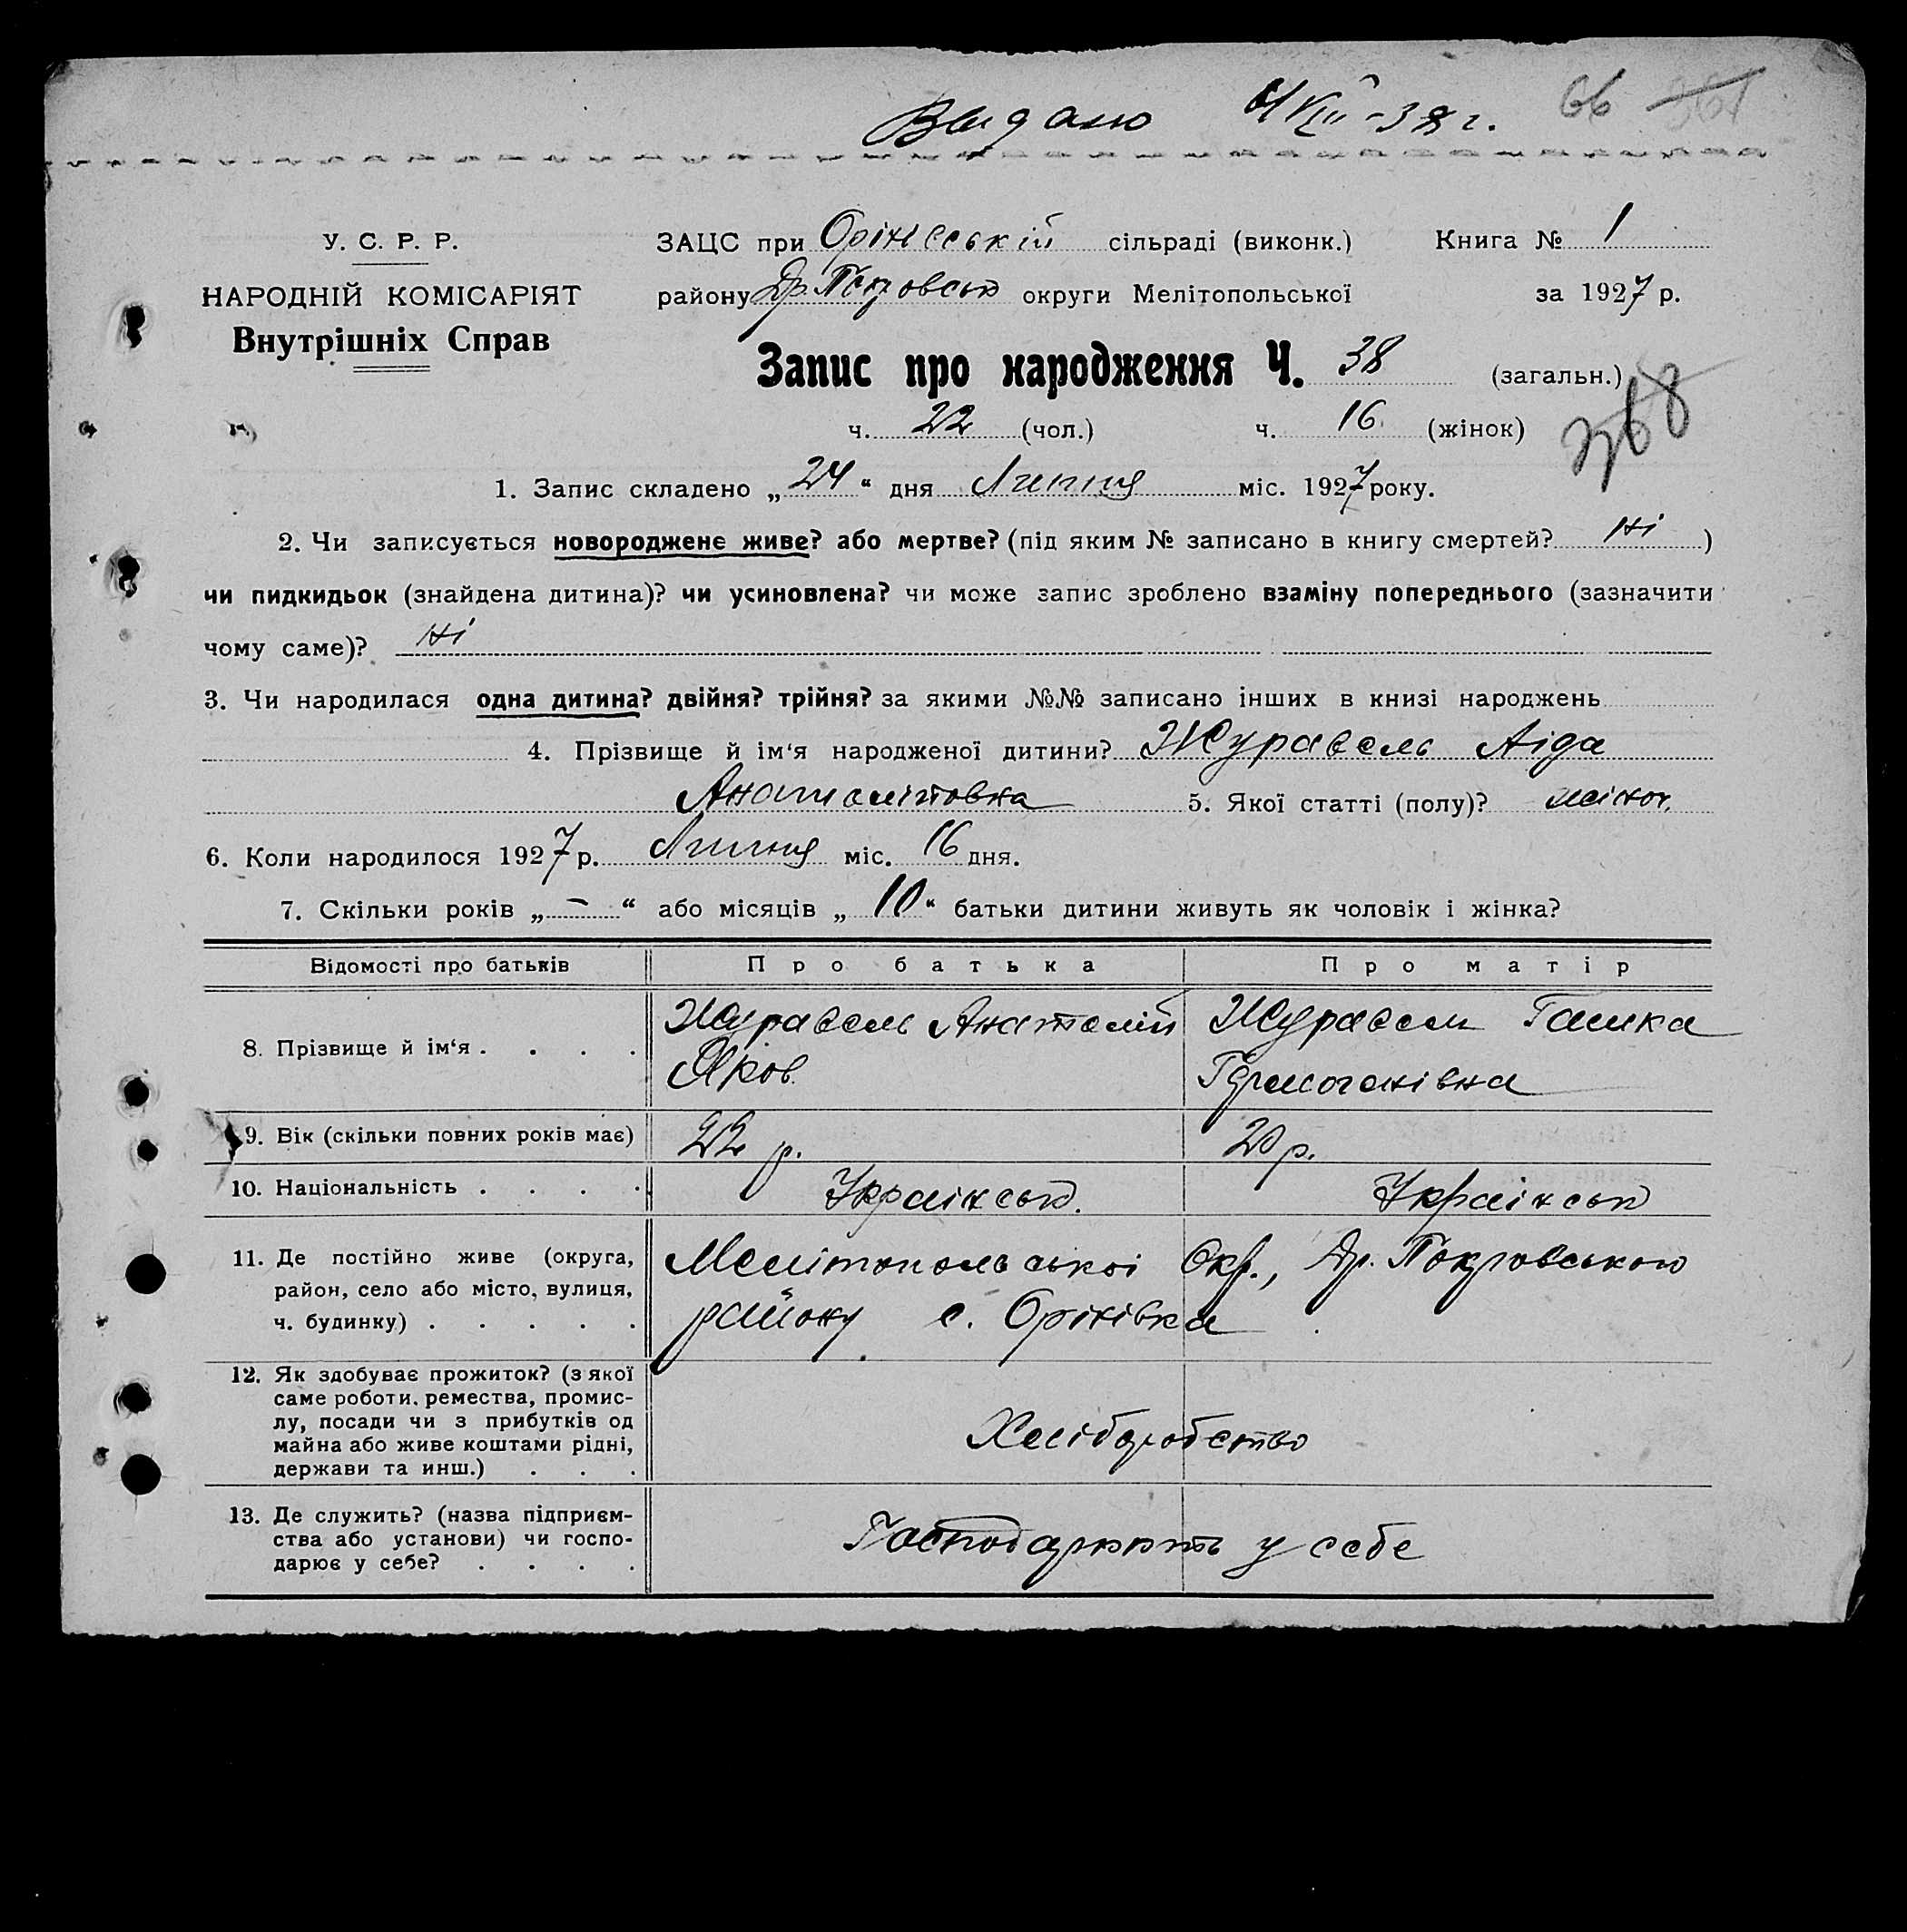 Видано
66
У. С. Р. Р.
НАРОДНІЙ КОМІСАРІЯТ
Внутрішніх Справ
ЗАЦС при Орінєській сільраді (виконк.) Книга № 1
району Др. Покровськ округи Мелітопольської за 1927 р.
Запис про народження Ч. 38 (загальн.)
368
ч. 22 (чол.) ч. 16 (жінок)
1. Запис складено „ 24 “ дня Липня міс. 1927 року.
2. Чи записується новороджене живе? або мертве? (під яким № записано в книгу смертей? Ні )
чи пидкидьок (знайдена дитина)? чи усиновлена? чи може запис зроблено взаміну попереднього (зазначити
чому саме)? Ні
3. Чи народилася одна дитина? двійня? трійня? за якими №№ записано інших в книзі народжень
4. Прізвище й ім‘я народженої дитини? Журавель Аіда
Анатолітовна 5. Якої статті (полу)? жіноч.
6. Коли народилося 1927 р. Липня міс. 16 дня.
7. Скільки років „ – “ або місяців „ 10 “ батьки дитини живуть як чоловік і жінка?
Відомості про батьків Про батька Про матір
8. Прізвище й ім‘я . . . . Журавель Анатолій Журавель Галька
Яков. Гермогенівна
9. Вік (скільки повних років має) 22 р. 20 р.
10. Національність . . . . Українськ. Українськ
11. Де постійно живе (округа, район, село або місто, вулиця, ч. будинку) . . . . . Мелітопольської Окр., Др. Покровського
району с. Орінівка
12. Як здобуває прожиток? (з якої
саме роботи, ремества, промис-
лу, посади чи з прибутків од
майна або живе коштами рідні,
держави та инш.) . . . Хліборобство
13. Де служить? (назва підприєм-
ства або установи) чи госпо-
дарює у себе? . . . . Господарюють у себе